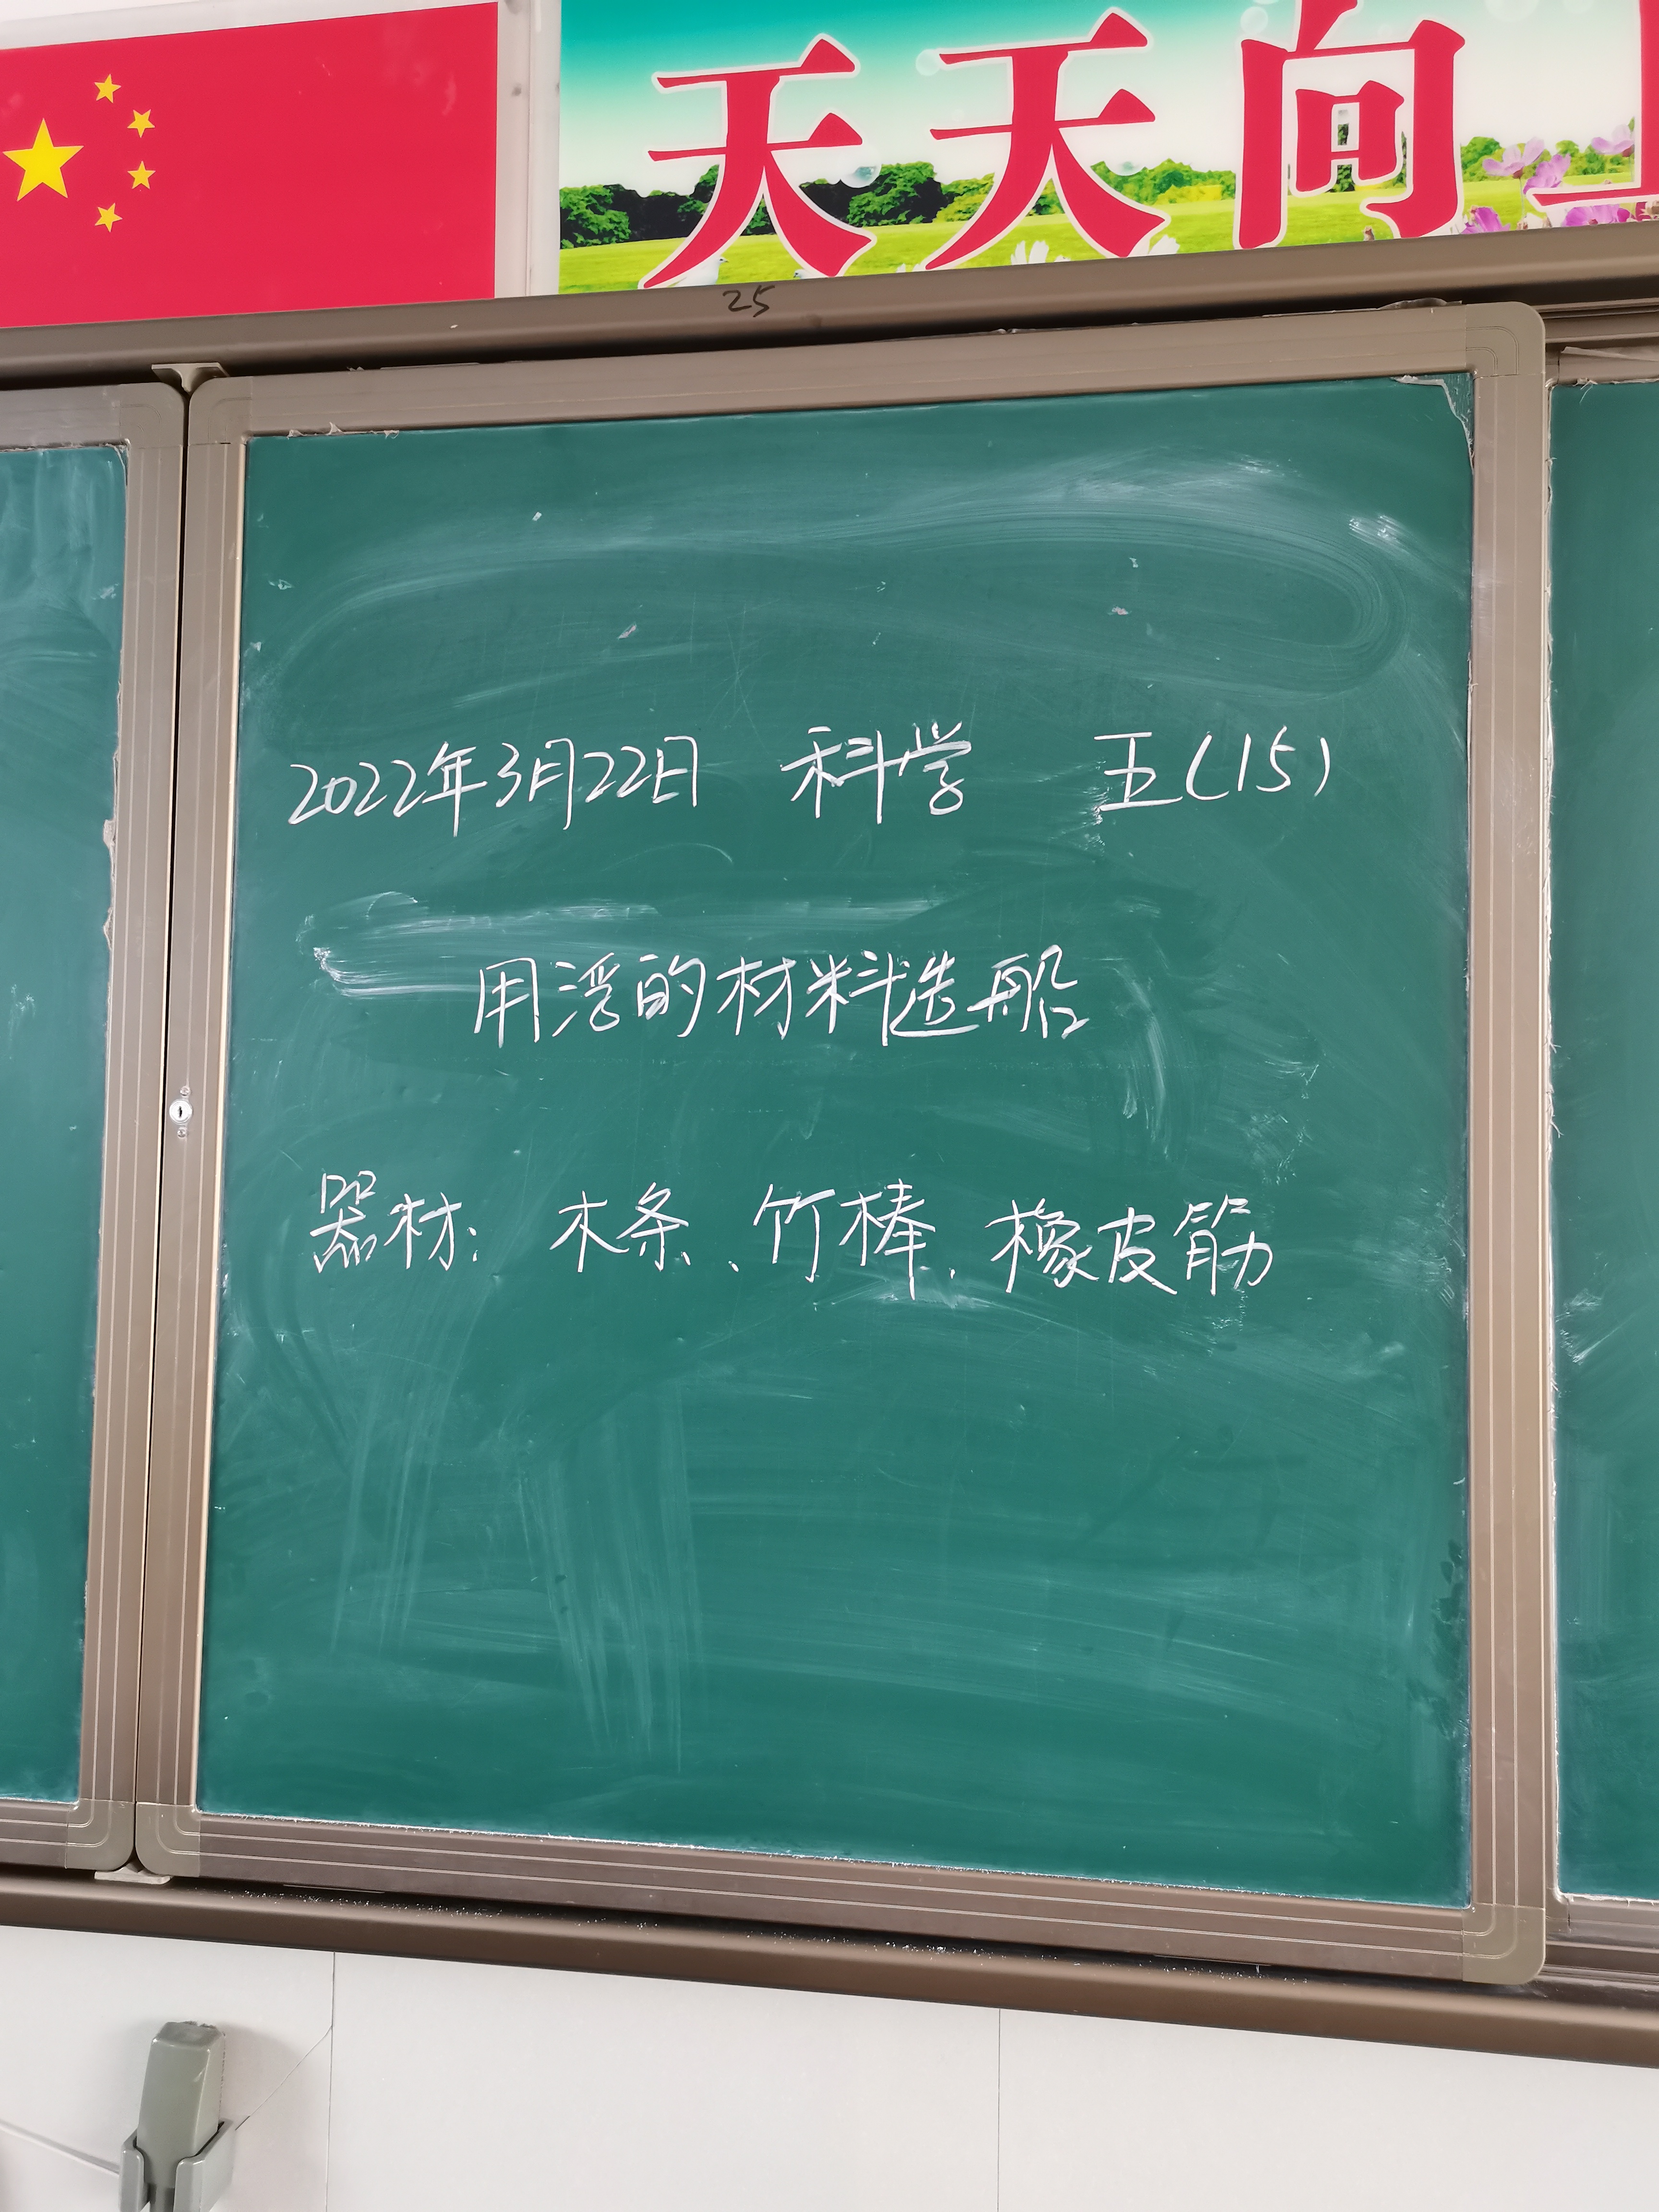 天天向
25
2022年3月22日 科学 五(15)
用浮的材料造船
器材: 木条、竹棒、橡皮筋